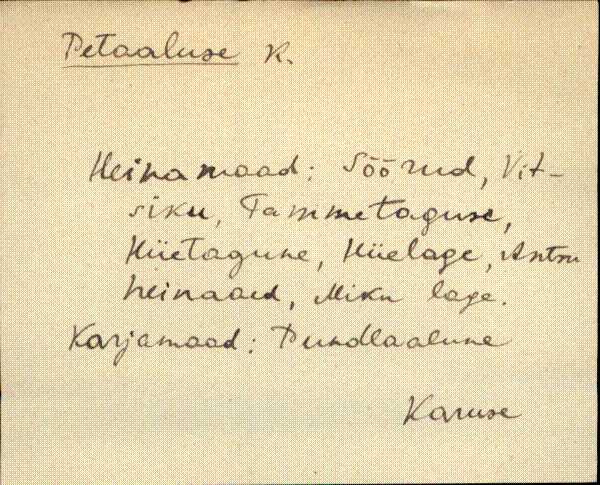 Petaaluse K.
Heinamaad: Sõõrud, Vit-
siku, Tammetaguse,
Hüetagune, Hüelage, Antsu
heinaaed, Miku lage.
Karjamaad: Pundlaalune
Karuse